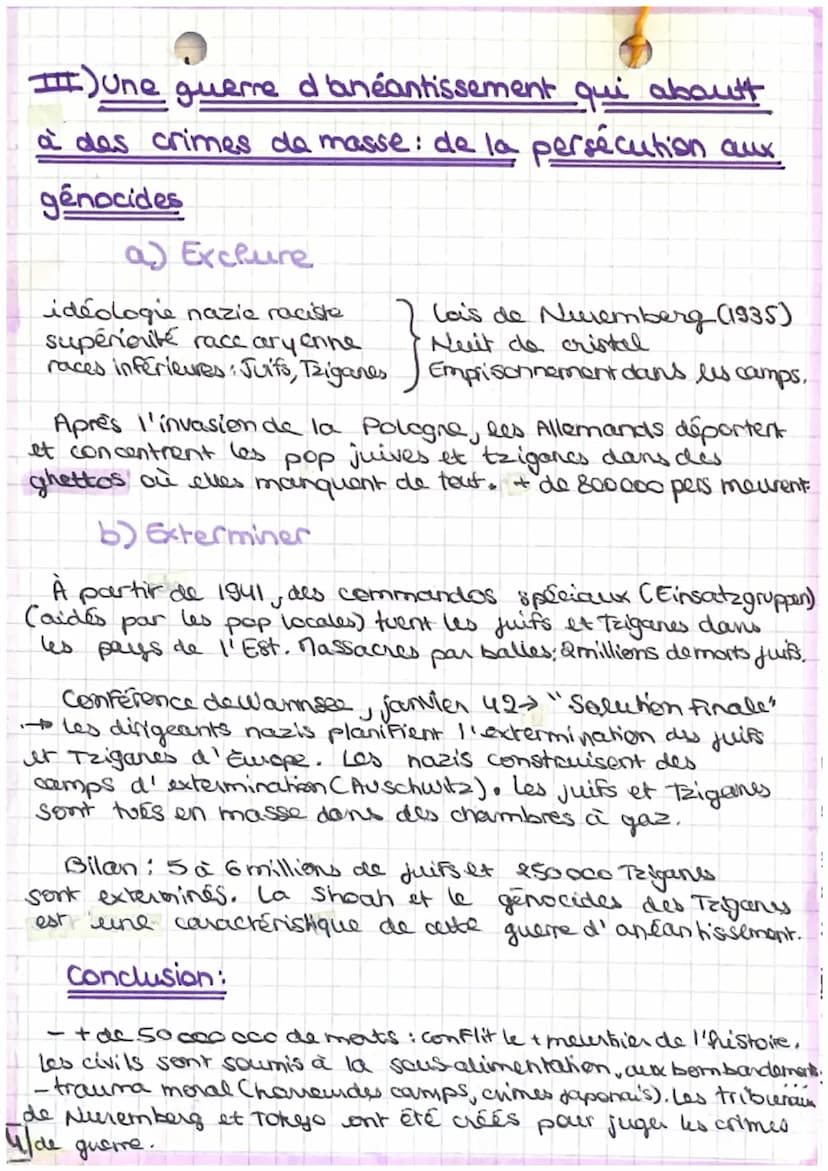 III) Une guerre d'anéantissement qui aboutit
à des crimes de masse : de la persécution aux
génocides
a) Exclure
idéologie nazie raciste
supériorité race aryenne
races inférieures : Juifs, Tziganes
lois de Nuremberg (1935)
Nuit de cristal
Emprisonnement dans les camps.
Après l'invasion de la Pologne, les Allemands déportent
et concentrent les pop juives et tziganes dans des
ghettos où elles manquent de tout. + de 800 000 pers meurent
b) Exterminer
À partir de 1941, des commandos spéciaux (Einsatzgruppen)
(aidés par les pop locales) tuent les juifs et Tziganes dans
les pays de l'Est. Massacres par balles; 2 millions de morts juifs.
Conférence de Wannsee, janvier 42 → "Solution finale"
→ les dirigeants nazis planifient l'extermination des juifs
et Tziganes d'Europe. Les nazis construisent des
camps d'extermination (Auschwitz). Les juifs et Tziganes
sont tués en masse dans des chambres à gaz.
Bilan : 5 à 6 millions de juifs et 250 000 Tziganes
sont exterminés. La Shoah et le génocides des Tziganes
est une caractéristique de cette guerre d'anéantissement.
Conclusion :
- + de 50 000 000 de morts : conflit le + meurtrier de l'histoire.
Les civils sont soumis à la sous-alimentation, aux bombardements...
- trauma moral (horreur des camps, crimes japonais). Les tribunaux
de Nuremberg et Tokyo ont été créés pour juger les crimes
de guerre.
4/